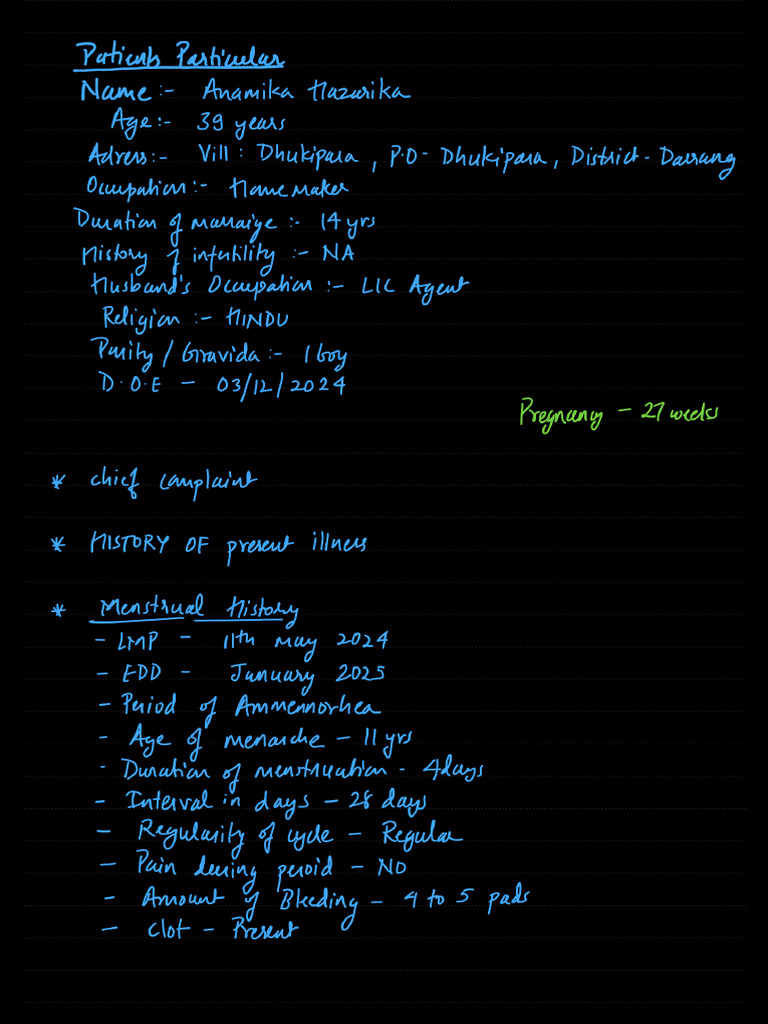 Patients Particular
Name :- Anamika Hazarika
Age :- 39 years
Adress :- Vill : Dhukipara , P.O- Dhukipara , District - Darrang
Occupation :- Home maker
Duration of marraige :- 14 yrs
History of infertility :- NA
Husband's Occupation :- LIC Agent
Religion :- HINDU
Parity / Gravida :- 1 boy
D.O.E - 03/12/2024
Pregnancy - 27 weeks
* chief complaint
* HISTORY OF present illness
* Menstrual History
- LMP - 11th may 2024
- EDD - January 2025
- Period of Ammennorhea
- Age of menarche - 11 yrs
- Duration of menstruation - 4days
- Interval in days - 28 days
- Regularity of cycle - Regular
- Pain during peroid - NO
- Amount of Bleeding - 4 to 5 pads
- Clot - Present